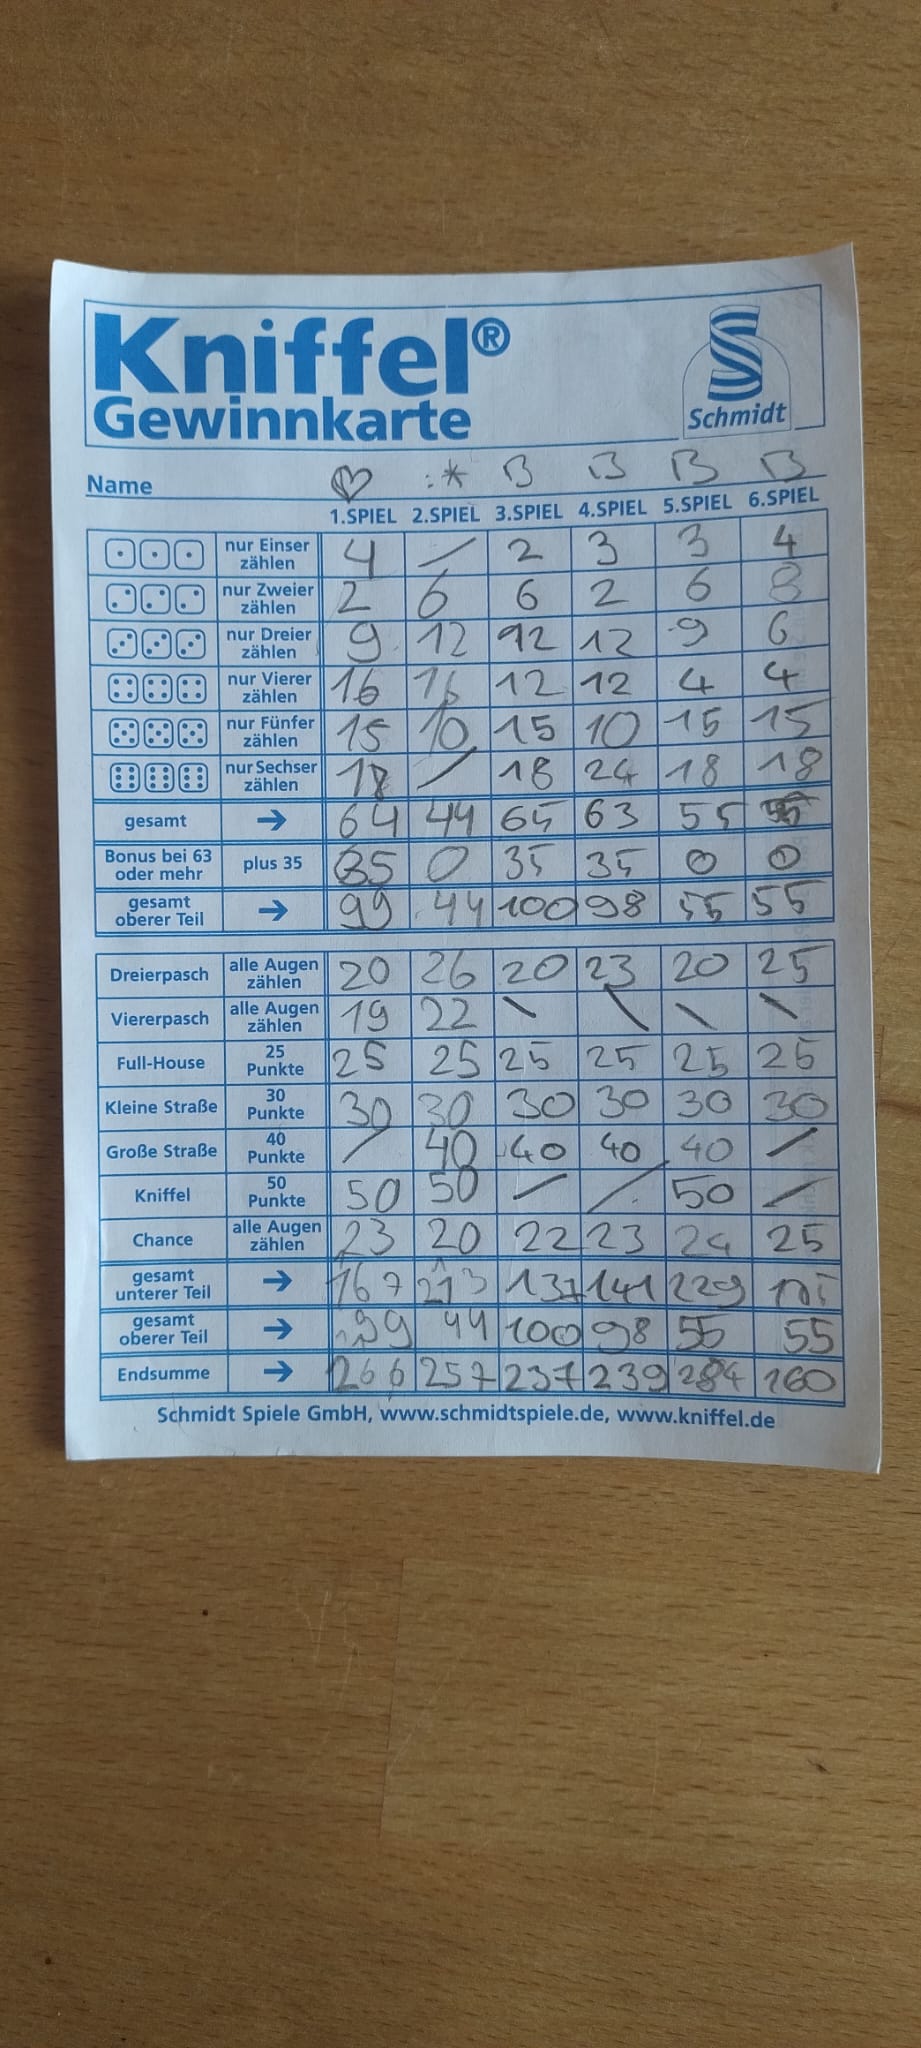 Kniffel®
Gewinnkarte
Schmidt
Name :* B B B B
1.SPIEL 2.SPIEL 3.SPIEL 4.SPIEL 5.SPIEL 6.SPIEL
nur Einser zählen 4 / 2 3 3 4
nur Zweier zählen 2 6 6 2 6 8
nur Dreier zählen 9 12 12 12 9 6
nur Vierer zählen 16 16 12 12 4 4
nur Fünfer zählen 15 10 15 10 15 15
nur Sechser zählen 18 / 18 24 18 18
gesamt → 64 44 65 63 55
Bonus bei 63 oder mehr plus 35 35 0 35 35 0 0
gesamt oberer Teil → 99 44 100 98 55 55
Dreierpasch alle Augen zählen 20 26 20 23 20 25
Viererpasch alle Augen zählen 19 22 \ \ \ \
Full-House 25 Punkte 25 25 25 25 25 25
Kleine Straße 30 Punkte 30 30 30 30 30 30
Große Straße 40 Punkte / 40 40 40 40 /
Kniffel 50 Punkte 50 50 / / 50 /
Chance alle Augen zählen 23 20 22 23 24 25
gesamt unterer Teil → 167 213 137 141 229
gesamt oberer Teil → 99 44 100 98 55 55
Endsumme → 266 257 237 239 284 160
Schmidt Spiele GmbH, www.schmidtspiele.de, www.kniffel.de